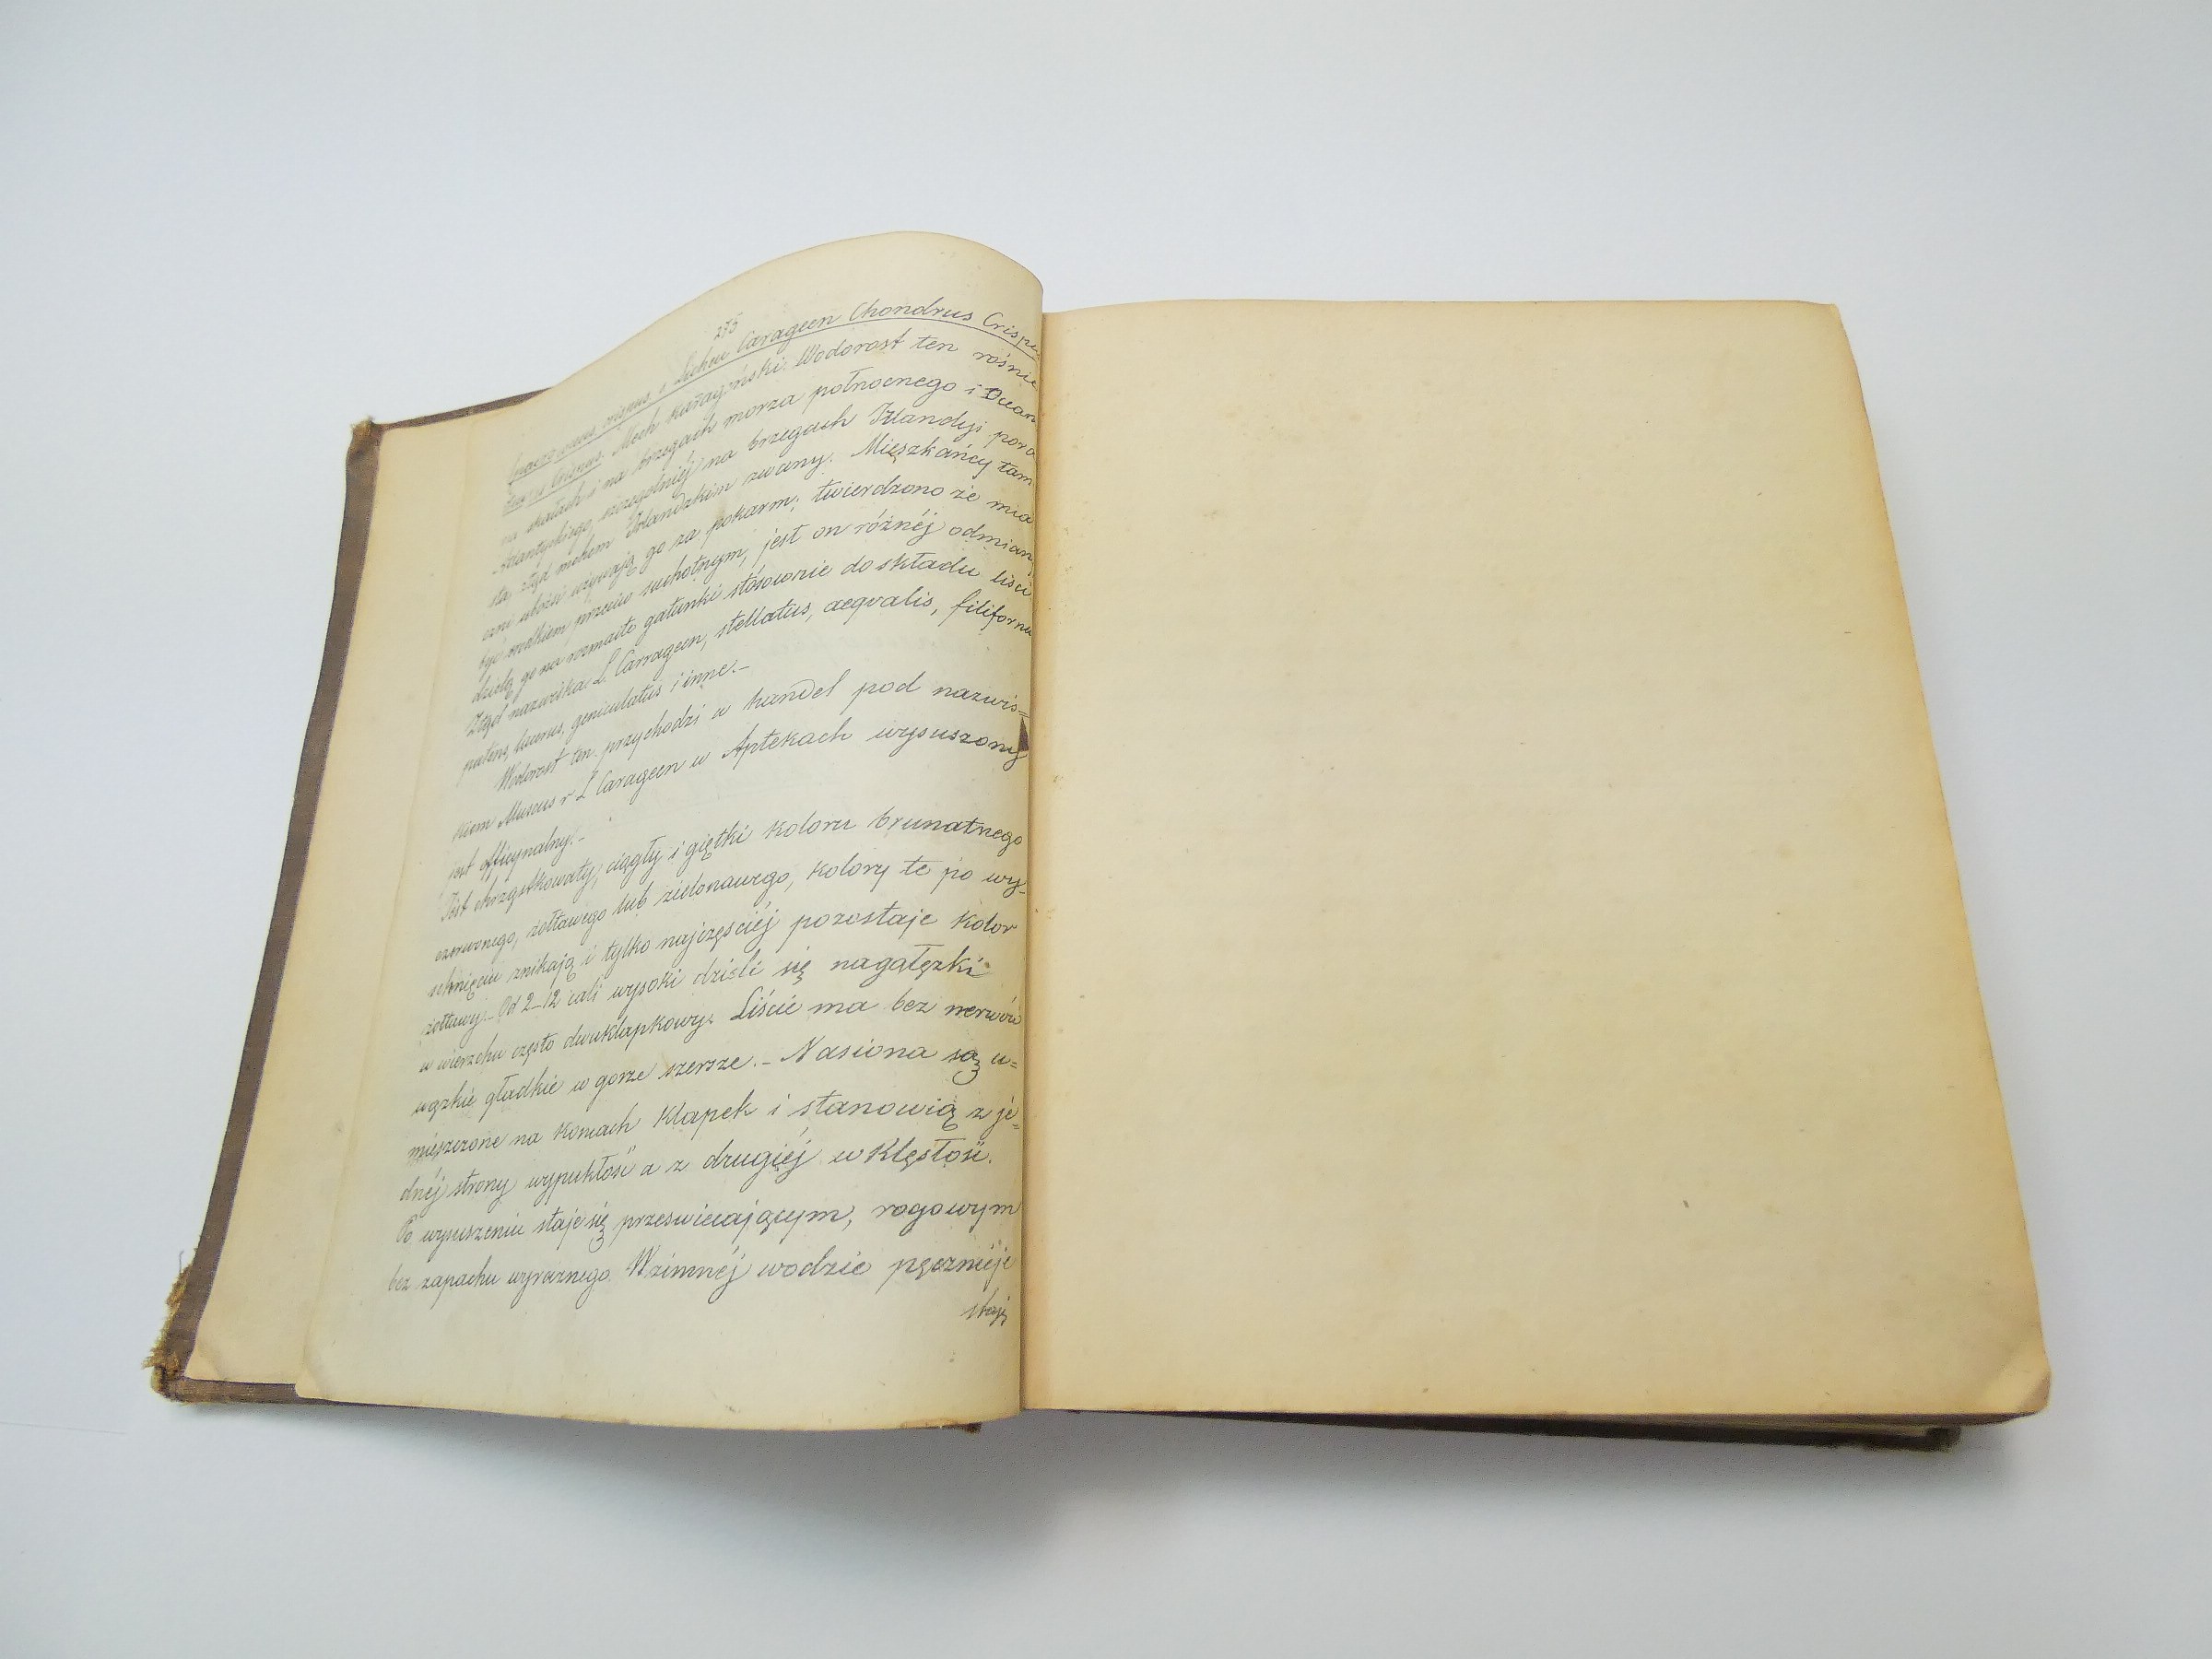 275
crispus s. Lichen Carageen Chondrus Crispus
Crispus. Mech karagiński. Wodorost ten rośnie
na skałach i na brzegach morza połnocnego i Ocean
Atlantyckiego, szczególniéj na brzegach Irlandyi pora
sta, ztąd mchem Irlandzkim zwany. Mieszkańcy tam
ubożsi używają go za pokarm; twierdzono że mia
być środkiem przeciw suchotnym, jest on różnéj odmiany
dzielą go na rozmaite gatunki stósownie do składu liści
Ztąd nazwiska L. Carrageen, stellatus, aeqvalis, filiformis
patens, lacerus, geniculatus i inne.–
Wodorost ten przychodzi w handel pod nazwis=
kiem Muscus v L Carageen w Aptekach wysuszony
jest officynalny.–
Jest chrząstkowaty, ciągły i giętki koloru brunatnego
czerwonego, żółtawego lub zielonawego, kolory te po wy-
schnięciu znikają i tylko najczęściéj pozostaje kolor
żółtawy.– Od 2–12 cali wysoki dzieli się na gałęzki
w wierzchu często dwuklapkowy. Liście ma bez nerwów
wązkie gładkie w gorze szersze.– Nasiona są u=
mieszczone na koncach klapek i stanowią z je=
dnéj strony wypukłość a z drugiéj wklęsłość.
Po wysuszeniu staje się przeswiecającym, rogowym
bez zapachu wyraznego. W zimnéj wodzie pęcznieje
staje